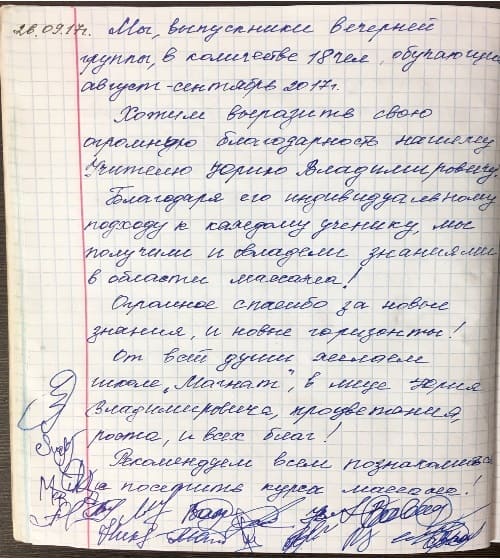 26.09.17г. Мы, выпускники вечерней
группы, в количестве 18 чел, обучающиеся
август-сентябрь 2017г.
Хотим выразить свою
огромную благодарность нашему
Учителю Юрию Владимировичу.
Благодаря его индивидуальному
подходу к каждому ученику, мы
получили и овладели знаниями
в области массажа!
Огромное спасибо за новые
знания, и новые горизонты!
От всей души желаем
школе "Магнат", в лице Юрия
Владимировича, процветания,
роста, и всех благ!
Рекомендуем всем познакомиться
и посетить курса массажа!